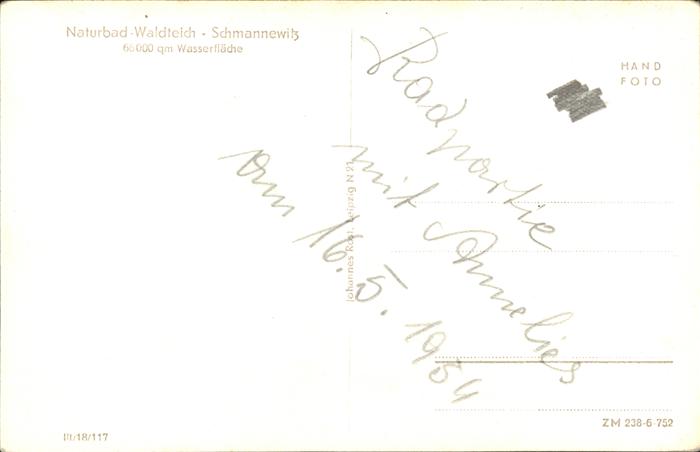 Naturbad-Waldteich • Schmannewitz
66000 qm Wasserfläche
HAND
FOTO
Radpartie
mit Annelies
am 16. 5. 1954
Johannes Leipzig N 21
III/18/117
ZM 238-6-752